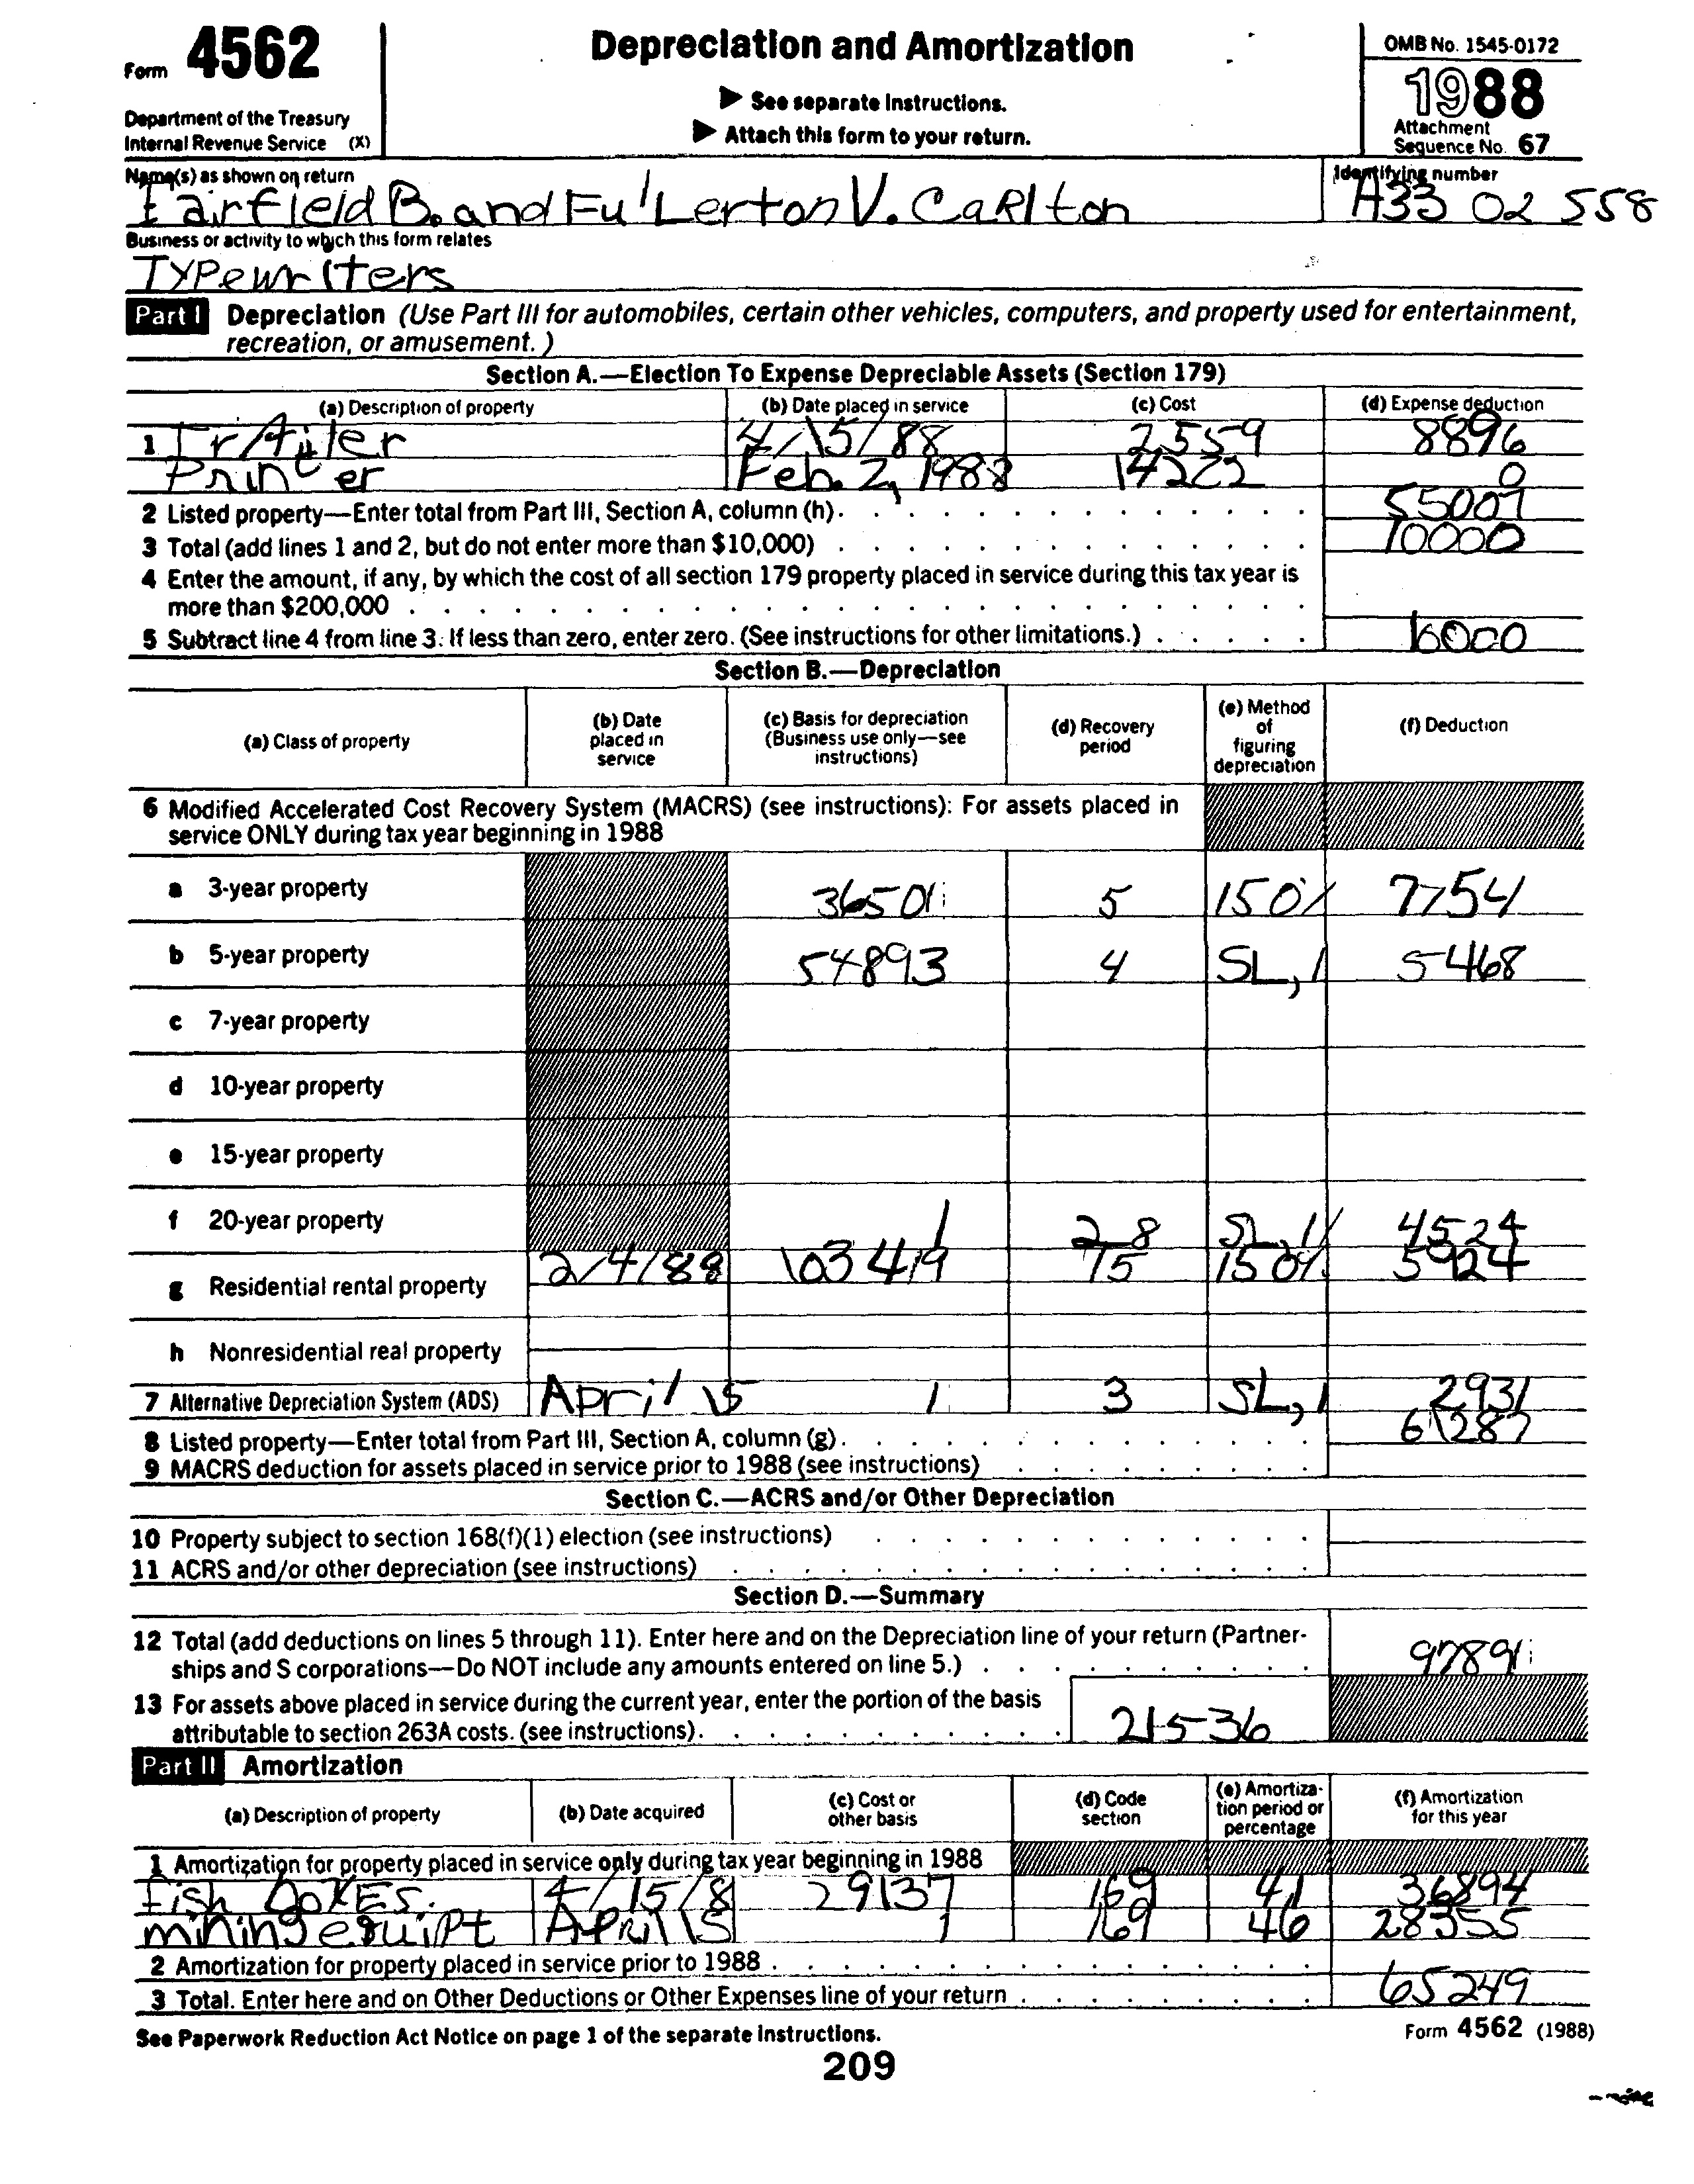 Form 4562
Department of the Treasury
Internal Revenue Service (X)
Depreciation and Amortization
▶ See separate Instructions.
▶ Attach this form to your return.
OMB No. 1545-0172
1988
Attachment
Sequence No. 67
Name(s) as shown on return
Fairfield B. and Fullerton V. Carlton
Identifying number
A33 02 558
Business or activity to which this form relates
Typewriters
Part I Depreciation (Use Part III for automobiles, certain other vehicles, computers, and property used for entertainment,
recreation, or amusement.)
Section A.—Election To Expense Depreciable Assets (Section 179)
(a) Description of property (b) Date placed in service (c) Cost (d) Expense deduction
1 4/15/88 2559 8896
Printer Feb. 2, 1988 14222 0
2 Listed property—Enter total from Part III, Section A, column (h). 55009
3 Total (add lines 1 and 2, but do not enter more than $10,000) 10000
4 Enter the amount, if any, by which the cost of all section 179 property placed in service during this tax year is
more than $200,000
5 Subtract line 4 from line 3. If less than zero, enter zero. (See instructions for other limitations.) 10000
Section B.—Depreciation
(a) Class of property
(b) Date
placed in
service
(c) Basis for depreciation
(Business use only—see
instructions)
(d) Recovery
period
(e) Method
of
figuring
depreciation
(f) Deduction
6 Modified Accelerated Cost Recovery System (MACRS) (see instructions): For assets placed in
service ONLY during tax year beginning in 1988
a 3-year property 36501 5 150% 7754
b 5-year property 54893 4 SL, 1 5468
c 7-year property
d 10-year property
e 15-year property
f 20-year property 1 28 SL, 1/ 4524
g Residential rental property 2/4/88 103419 15 150% 5924
h Nonresidential real property
7 Alternative Depreciation System (ADS) April 15 1 3 SL, 1 2931
8 Listed property—Enter total from Part III, Section A, column (g). 61287
9 MACRS deduction for assets placed in service prior to 1988 (see instructions)
Section C.—ACRS and/or Other Depreciation
10 Property subject to section 168(f)(1) election (see instructions)
11 ACRS and/or other depreciation (see instructions)
Section D.—Summary
12 Total (add deductions on lines 5 through 11). Enter here and on the Depreciation line of your return (Partner-
ships and S corporations—Do NOT include any amounts entered on line 5.) 97891
13 For assets above placed in service during the current year, enter the portion of the basis
attributable to section 263A costs. (see instructions). 21536
Part II Amortization
(a) Description of property
(b) Date acquired
(c) Cost or
other basis
(d) Code
section
(e) Amortiza-
tion period or
percentage
(f) Amortization
for this year
1 Amortization for property placed in service only during tax year beginning in 1988
fish boxes. 4/15/8 29137 169 41 36894
mining equipt April 15 1 169 46 28355
2 Amortization for property placed in service prior to 1988
3 Total. Enter here and on Other Deductions or Other Expenses line of your return 65249
See Paperwork Reduction Act Notice on page 1 of the separate Instructions.
Form 4562 (1988)
209